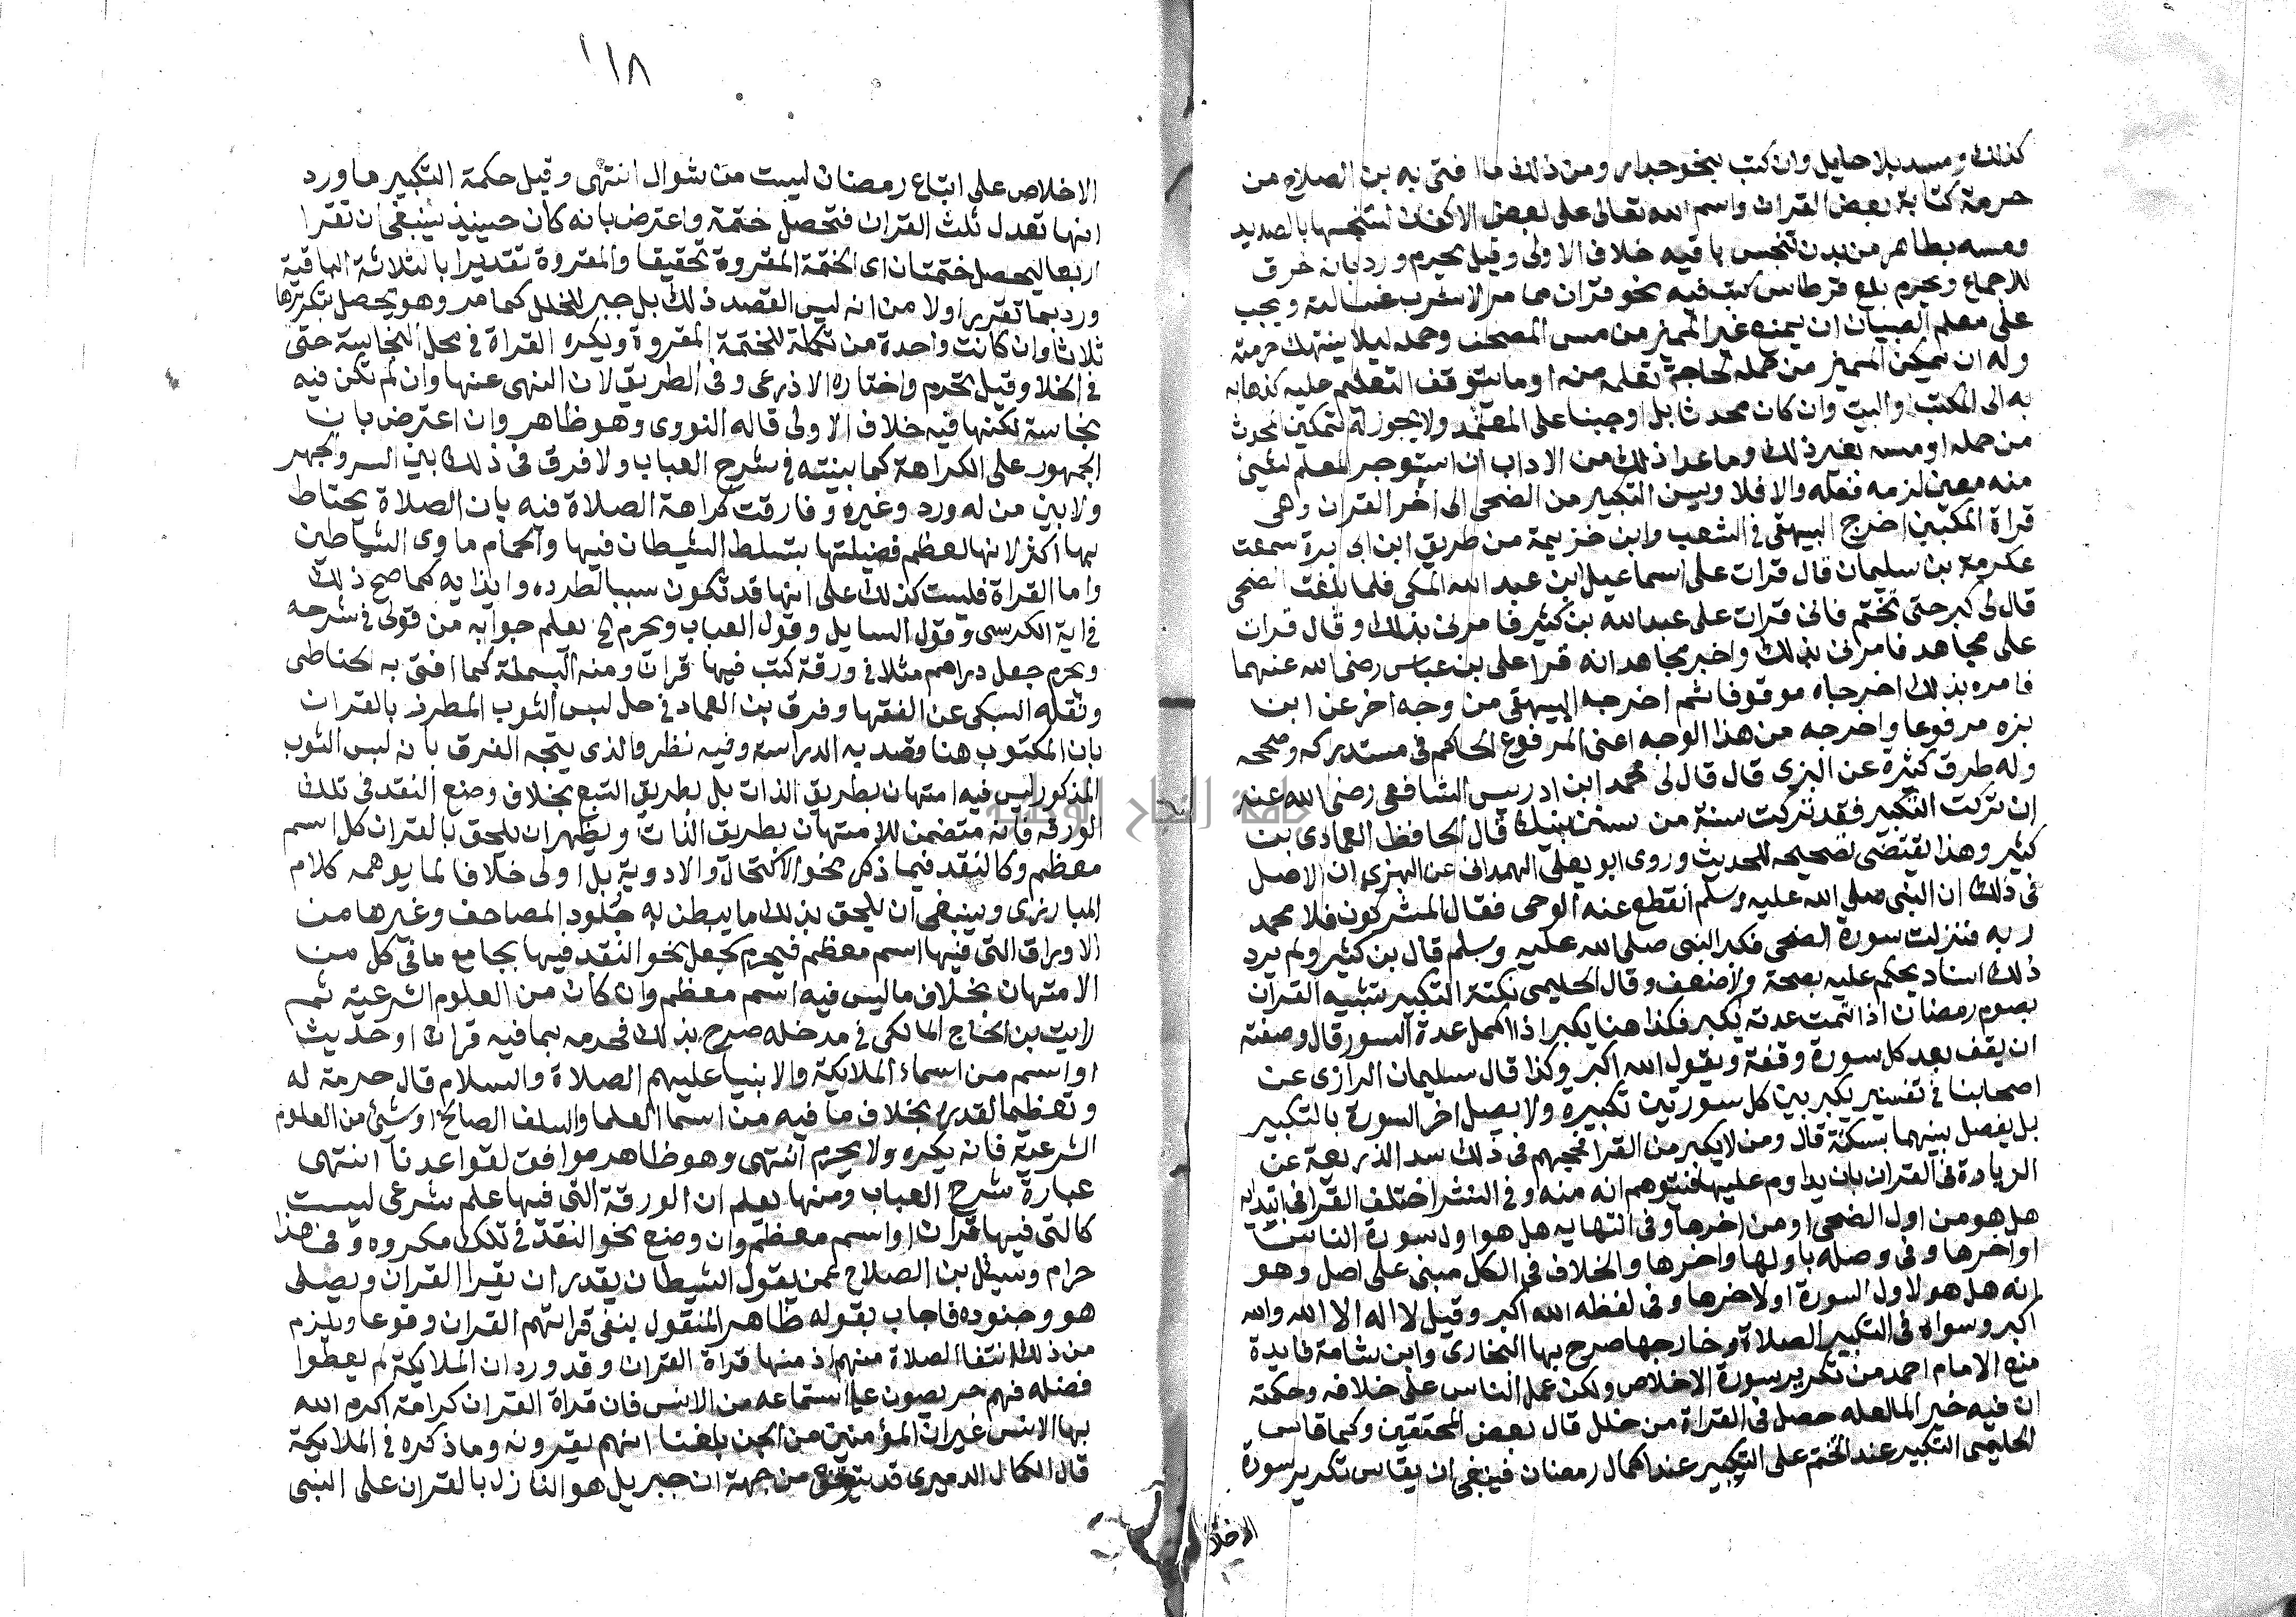 كذلك ومسه بلا حايل وان كتب بنحو جدار ومن ذلك ما افتى به بن الصلاح من
حرمة كتابة بعض القران واسم الله تعالى على بعض الاكفان لتنجسها بالصديد
ومسه بطاهر من بدن تنجس باقيه خلاف الاولى وقيل يحرم ورد بانه خرق
للاجماع ويحرم بلع قرطاس كتب فيه نحو قران مما مر لا شرب غسالته ويجب
على معلم الصبيان ان يمنع غير المميز من مس المصحف وحمله ليلا ينتهك حرمته
وله ان يمكن المميز من حمله لحاجة تعلمه منه او ما يتوقف التعلم عليه كذهابه
به الى المكتب والبيت وان كان محدثا بل اوجبنا على المعتمد ولا يجوز له تمكين المحدث
من حمله او مسه لغير ذلك وما عدا ذلك من الاداب ان استوجر المعلم لشئ
منه معين لزمه فعله والا فلا ويسن التكبير من الضحى الى اخر القران وهى
قراة المكيين اخرج البيهقى فى الشعب وابن خزيمة من طريق ابن ابى بزة سمعت
عكرمة بن سليمان قال قرات على اسماعيل ابن عبد الله المكى فلما بلغت الضحى
قال لى كبر حتى تختم فانى قرات على عبد الله بن كثير فامرنى بذلك وقال قرات
على مجاهد فامرنى بذلك واخبر مجاهد انه قرا على بن عباس رضى الله عنهما
فامره بذلك اخرجاه موقوفا ثم اخرجه البيهقى من وجه اخر عن ابن
بزه مرفوعا واخرجه من هذا الوجه اعنى المرفوع الحاكم فى مستدركه وصححه
وله طرق كثيرة عن البزى قال قال لى محمد ابن ادريس الشافعى رضى الله عنه
ان تركت التكبير فقد تركت سنة من سنن نبيك قال الحافظ العمادى بن
كثير وهذا يقتضى تصحيحه للحديث وروى ابو يعلى الهمدانى عن البزي ان الاصل
فى ذلك ان النبى صلى الله عليه وسلم انقطع عنه الوحى فقال المشركون قلا محمد
ربه فنزلت سورة الضحى فكبر النبى صلى الله عليه وسلم قال بن كثير ولم يرد
ذلك اسناد يحكم عليه بصحة ولا ضعف وقال الحليمى نكتة التكبير تشبيه القران
بصوم رمضان اذا تمت عدته يكبر فكذا هنا يكبر اذا اكمل عدة السور قال وصفته
ان يقف بعد كل سورة وقفة ويقول الله اكبر وكذا قال سليمان الرازى عن
اصحابنا فى تفسير يكبر بين كل سورتين تكبيرة ولا يصل اخر السورة بالتكبير
بل يفصل بينهما بسكتة قال ومن لا يكبر من القرا فحجتهم فى ذلك سد الذريعة عن
الزيادة فى القران بان يداوم عليها فتوهم انه منه وفى النشر اختلف القرا فى ابتدايه
هل هو من اول الضحى او من اخرها وفى انتهايه هل هو اول سورة الناس
او اخرها وفى وصله باولها واخرها والخلاف فى الكل مبنى على اصل وهو
انه هل هو لاول السورة او لاخرها وفى لفظه الله اكبر وقيل لا اله الا الله والله
اكبر وسواء فى التكبير الصلاة وخارجها صرح بها السخاوى وابن شامة فايدة
منع الامام احمد من تكرير سورة الاخلاص ولكن عمل الناس على خلافه وحكمته
ان فيه خيرا لما لعله حصل فى القراة من خلل قال بعض المحققين وكما قاس
الحليمى التكبير عند الختم على التكبير عند اكمال رمضان فينبغى ان يقاس تكرير سورة
الاخلا
١١٨
الاخلاص على اتباع رمضان لست من شوال انتهى وقيل حكمة التكبير ما ورد
انها تعدل ثلث القران فتحصل ختمة واعترض بانه كان حينيذ ينبغى ان تقرا
اربعا ليحصل ختمتان اى الختمة المقروة تحقيقا والمقروة تقديرا بالثلاثة الباقية
ورد بما تقرر اولا من انه ليس القصد ذلك بل جبر الخلل كما مر وهو يحصل بتكريرها
ثلاثا وان كانت واحدة من تكملة الختمة المقروة ويكره القراة فى محل النجاسة حتى
فى الخلا وقيل تحرم واختاره الاذرعى وفى الطريق لان النهى عنها وان لم تكن فيه
نجاسة لكنها فيه خلاف الاولى قاله النووى وهو ظاهر وان اعترض بان
الجمهور على الكراهة كما بينته فى شرح العباب ولا فرق فى ذلك بين السر والجهر
ولا بين من له ورد وغيره وفارقت كراهة الصلاة فيه بان الصلاة يحتاط
بها اكثر لانها لعظم فضيلتها يتسلط الشيطان فيها والحمام ماوى الشياطين
واما القراة فليست كذلك على انها قد تكون سببا لطرده وايذايه كما صح ذلك
فى اية الكرسى وقول السايل وقول العباب ويحرم الخ يعلم جوابه من قولى فى شرحه
ويحرم جعل دراهم مثلا فى ورقة كتب فيها قران ومنه البسملة كما افتى به الحناطى
ونقله السبكى عن الفقها وفرق بن العماد فى حل لبس الثوب المطرز بالقران
بان المكتوب هنا قصد به الدراسة وفيه نظر والذى يتجه الفرق بان لبس الثوب
المذكور ليس فيه امتهان بطريق الذات بل بطريق التبع بخلاف وضع النقد فى تلك
الورقة فانه متضمن للامتهان بطريق الذات ويظهر ان يلحق بالقران كل اسم
معظم وكالنقد فيما ذكر نحو الاكتحال والادوية بل اولى خلافا لما يوهمه كلام
المبارزى وينبغى ان يلحق بذلك ما يبطن به جلود المصاحف وغيرها من
الاوراق التى فيها اسم معظم فيحرم كجعل نحو النقد فيها بجامع ما فى كل من
الامتهان بخلاف ما ليس فيه اسم معظم وان كان من العلوم الشرعية ثم
رايت بن الحاج المالكى فى مدخله صرح بذلك فحرمه بما فيه قران او حديث
او اسم من اسماء الملايكة والانبيا عليهم الصلاة والسلام قال حرمة له
وتعظيما لقدره بخلاف ما فيه من اسما العلما والسلف الصالح او شئ من العلوم
الشرعية فانه يكره ولا يحرم انتهى وهو ظاهر موافق لقواعدنا انتهى
عبارة شرح العباب ومنها يعلم ان الورقة التى فيها علم شرعى ليست
كالتى فيها قران او اسم معظم وان وضع نحو النقد فى تلك مكروه وفى هذا
حرام وسيل بن الصلاح عمن يقول الشيطان يقدر ان يقرا القران ويصلى
هو وجنوده فاجاب بقوله ظاهر المنقول ينفى قراتهم القران وقوعا ويلزم
من ذلك انتفا الصلاة منهم اذ منها قراة القران وقد ورد ان الملايكة لم يعطوا
فضله فهم حريصون على استماعه من الانس فان قراة القران كرامة اكرم الله
بها الانس غير ان المؤمنين من الجن بلغنا انهم يقرونه وما ذكره فى الملايكة
قال الكمال الدميرى قد يتوقف من جهة ان جبريل هو النازل بالقران على النبى